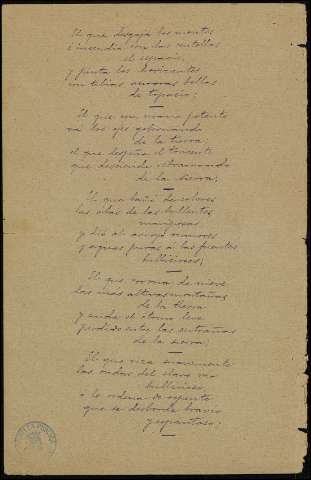 El que desgaja los montes
i incendia con las centellas
el espacio,
y pinta los horizontes
con tibias auroras bellas
de topacio;
El que con mano potente
va los ejes gobernando
de la tierra
el que despeña el torrente
que desciende rebramando
de la sierra;
El que bañó de colores
las alas de las bullentes
mariposas
y dió al arroyo rumores
y aguas puras á las fuentes
bulliciosas;
El que corona de nieve
las más altas montañas
de la tierra
y cuida el átomo leve
perdido entre las entrañas
de la sierra;
El que riza suavemente
las ondas del claro río
bullicioso
ó le ordena de repente
que se desborde bravío
y espantoso;